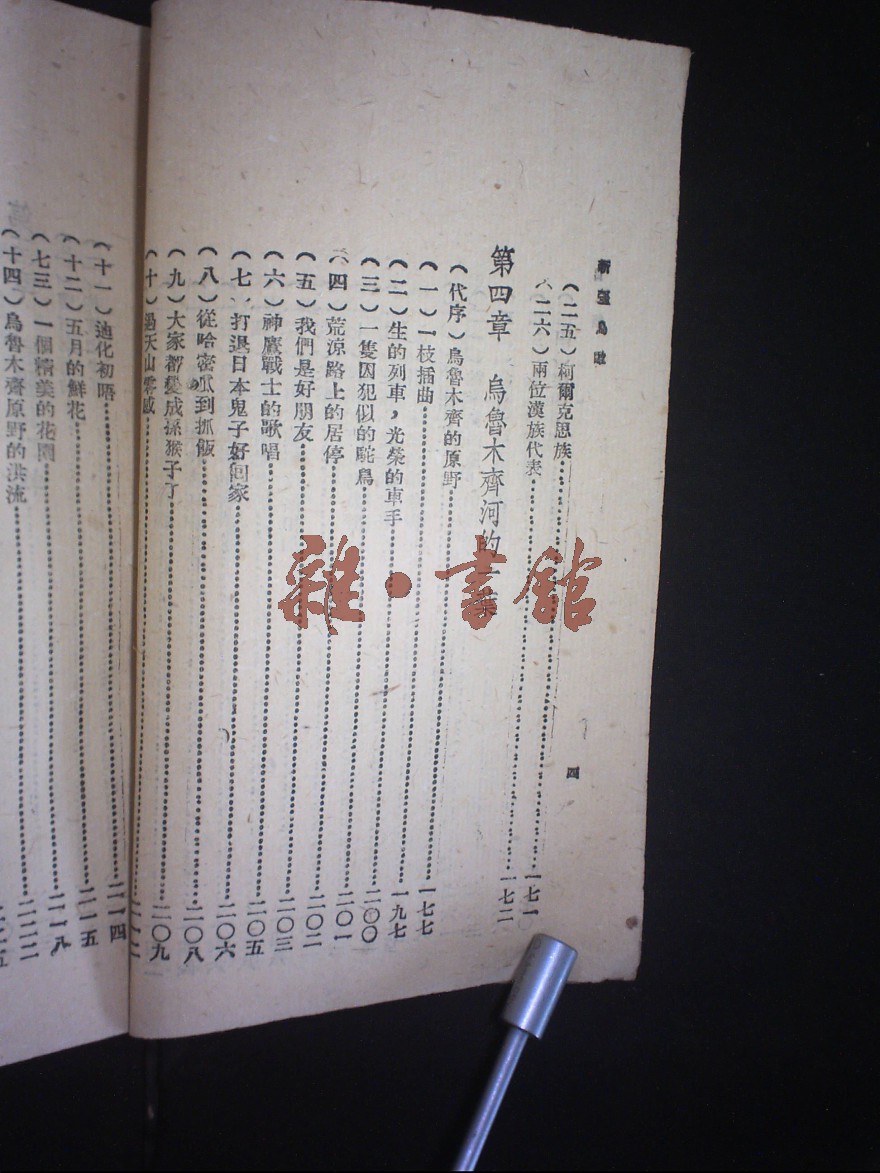 新疆鳥瞰
四
(二五)柯爾克思族……一七一
(二六)兩位漢族代表……一七二
第四章 烏魯木齊河的
(代序)烏魯木齊的原野……一七七
(一)一枝插曲……一九七
(二)生的列車，光榮的車手……二〇〇
(三)一隻囚犯似的鴕鳥……二〇一
(四)荒涼路上的居停……二〇二
(五)我們是好朋友……二〇三
(六)神鷹戰士的歌唱……二〇五
(七)打退日本鬼子好回家……二〇六
(八)從哈密瓜到抓飯……二〇八
(九)大家都變成孫猴子了……二〇九
(十)過天山零感……二一二
(十一)迪化初晤……二一四
(十二)五月的鮮花……二一五
(七三)一個精美的花園……二一八
(十四)烏魯木齊原野的洪流……二二二
雜·書館